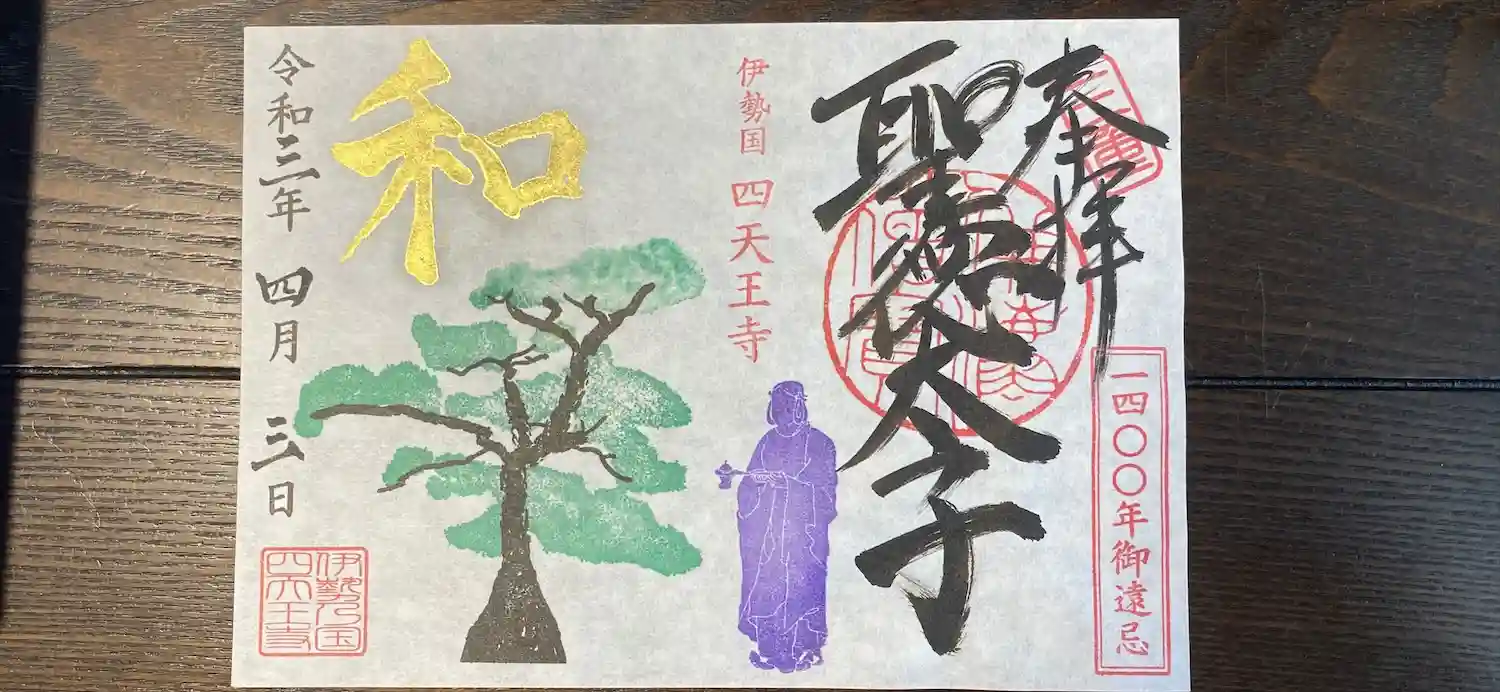 奉拝
一四〇〇年御遠忌
聖徳太子
伊勢国 四天王寺
和
令和三年 四月 三日
伊勢乃国
四天王寺